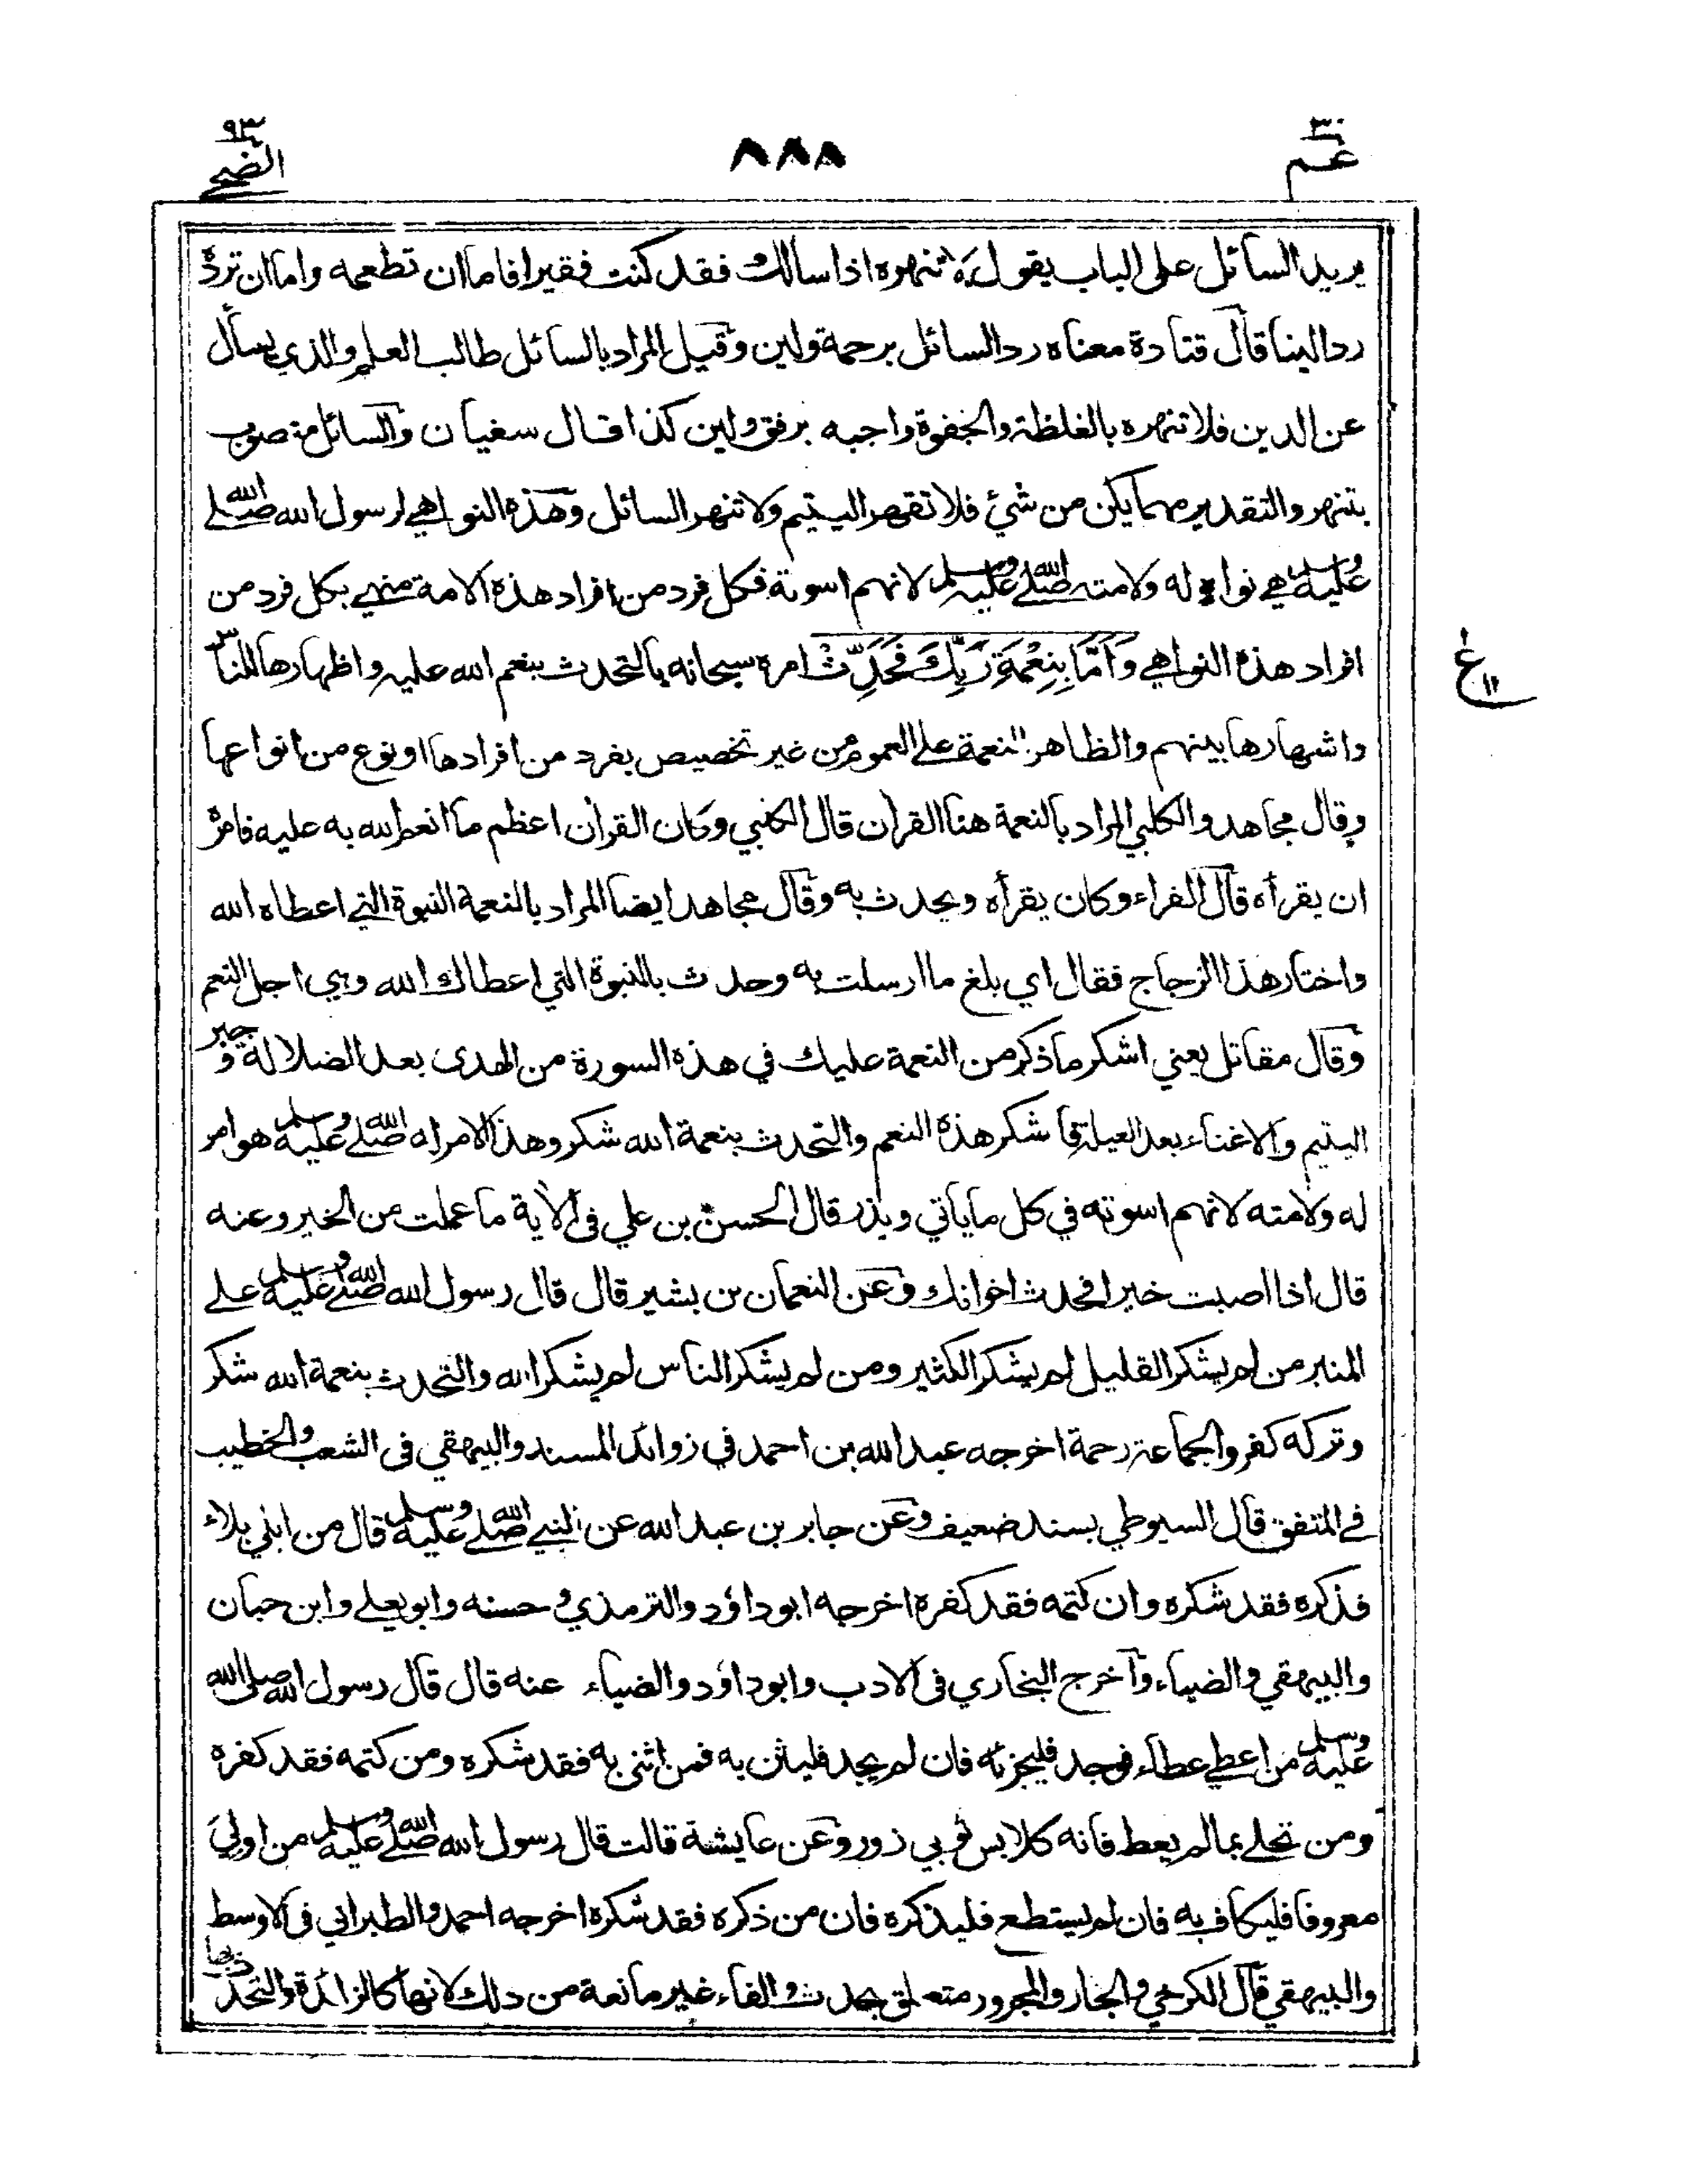 ٣٠
عم
٨٨٨
٩٣
الضحى
يريد السائل على الباب يقول لا تنهره اذا سالك فقد كنت فقيرا فاما ان تطعمه واما ان تردّه
ردا لينا قال قتادة معناه رد السائل برحمة ولين وقيل المراد بالسائل طالب العلم والذي يسأل
عن الدين فلا تنهره بالغلظة والجفوة واجبه برفق ولين كذا قال سفيان والسائل منصوب
بتنهر والتقدير مهما يكن من شئ فلا تقهر اليتيم ولا تنهر السائل وهذه النواهي لرسول الله صلى الله
عليه وسلم هي نواه له ولامته صلى الله عليه وسلم لانهم اسوته فكل فرد من افراد هذه الامة منهي بكل فرد من
افراد هذه النواهي وَاَمَّا بِنِعْمَةِ رَبِّكَ فَحَدِّثْ امره سبحانه بالتحدث بنعم الله عليه واظهارها للناس
واشهارها بينهم والظاهر النعمة على العموم من غير تخصيص بفرد من افرادها او نوع من انواعها
وقال مجاهد والكلبي المراد بالنعمة هنا القران قال الكلبي وكان القران اعظم ما انعم الله به عليه فامره
ان يقرأه قال الفراء وكان يقرأه ويحدث به وقال مجاهد ايضا المراد بالنعمة النبوة التي اعطاه الله
واختار هذا الزجاج فقال اي بلغ ما ارسلت به وحدث بالنبوة التي اعطاك الله وهي اجل النعم
وقال مقاتل يعني اشكر ما ذكر من النعمة عليك في هذه السورة من الهدى بعد الضلالة و جبر
اليتيم والاغناء بعد العيلة فاشكر هذه النعم والتحدث بنعمة الله شكر وهذا الامر له صلى الله عليه وسلم هو امر
له ولامته لانهم اسوته في كل ما ياتي ويذر قال الحسن بن علي في الاية ما عملت من الخير وعنه
قال اذا اصبت خيرا فحدث اخوانك وعن النعمان بن بشير قال قال رسول الله صلى الله عليه وسلم على
المنبر من لم يشكر القليل لم يشكر الكثير ومن لم يشكر الناس لم يشكر الله والتحدث بنعمة الله شكر
وتركه كفر والجماعة رحمة اخرجه عبد الله بن احمد في زوائد المسند والبيهقي في الشعب والخطيب
في المتفق قال السيوطي بسند ضعيف وعن جابر بن عبد الله عن النبي صلى الله عليه وسلم قال من ابلي بلاء
فذكره فقد شكره وان كتمه فقد كفره اخرجه ابو داؤد والترمذي و حسنه وابو يعلى وابن حبان
والبيهقي والضياء واخرج البخاري في الادب وابو داؤد والضياء عنه قال قال رسول الله صلى الله
عليه وسلم من اعطي عطاء فوجد فليجز به فان لم يجد فليثن به فمن اثنى به فقد شكره ومن كتمه فقد كفره
ومن تحلى بما لم يعط فانه كلابس ثوبي زور وعن عايشة قالت قال رسول الله صلى الله عليه وسلم من اولي
معروفا فليكاف به فان لم يستطع فليذكره فان من ذكره فقد شكره اخرجه احمد والطبراني في الاوسط
والبيهقي قال الكرخي والجار والمجرور متعلق بحدث والفاء غير مانعة من ذلك لانها كالزائدة والتحدث بها
ع
١١